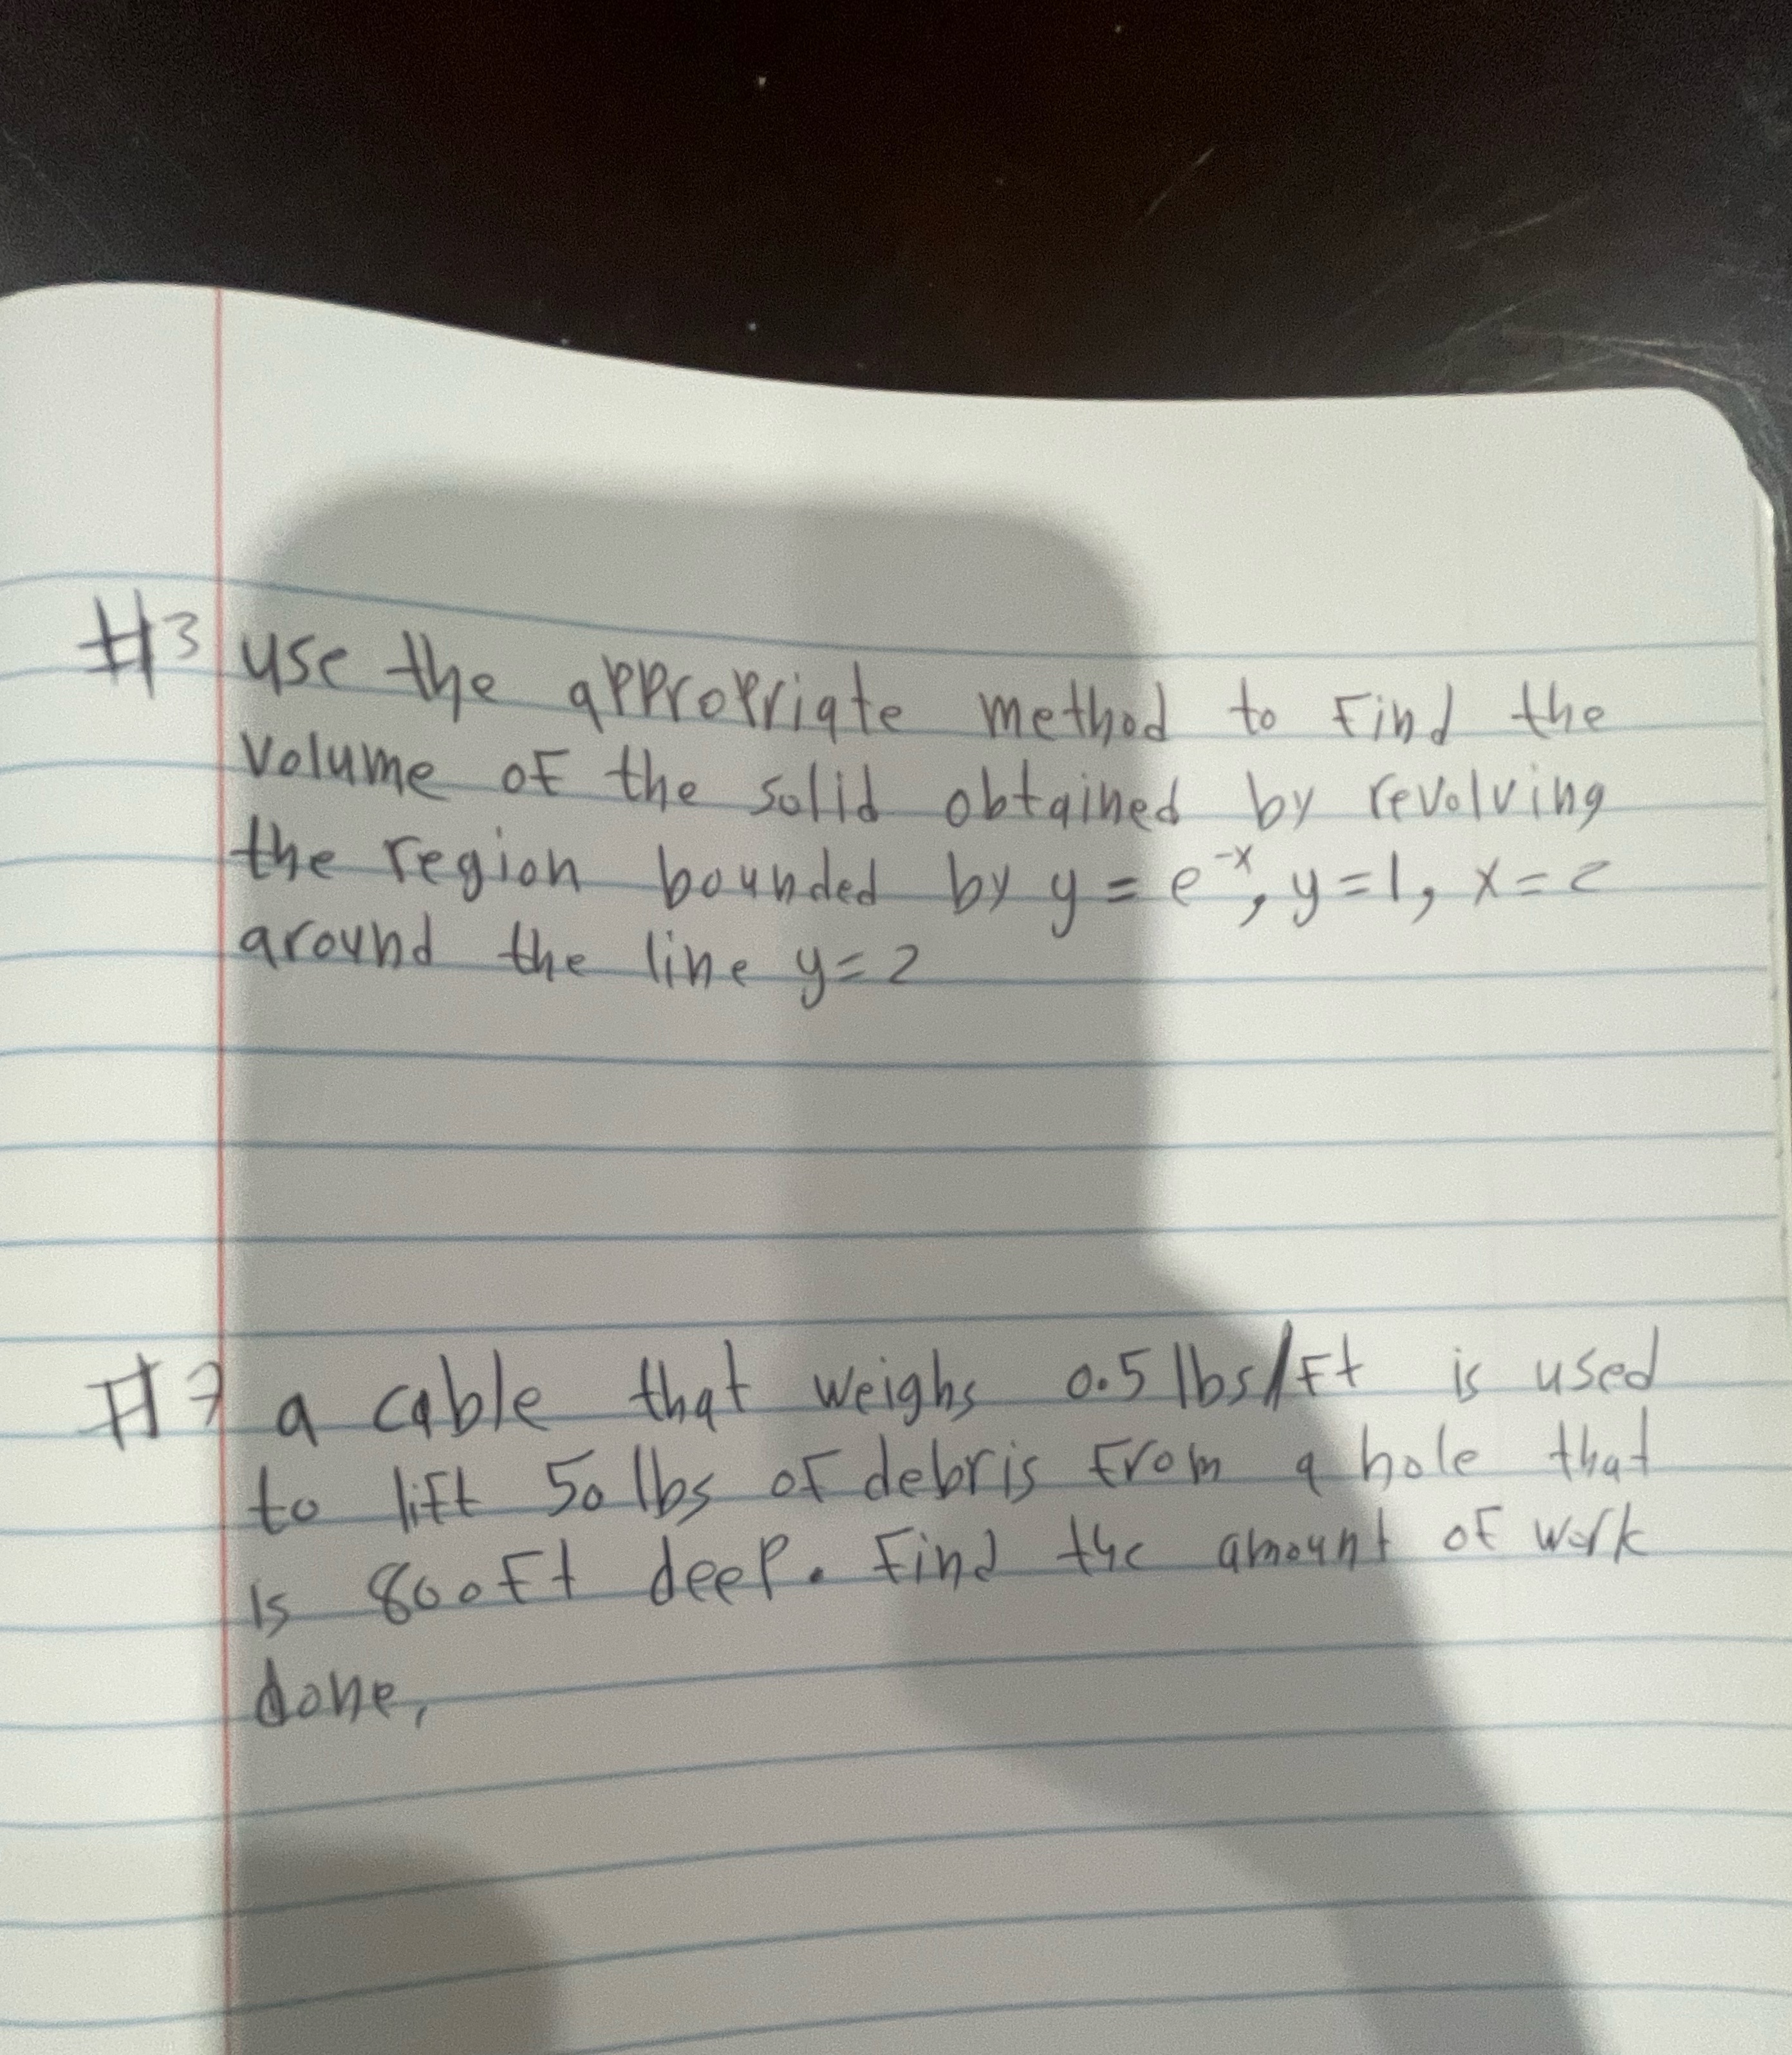 #3 use the appropriate method to find the
volume of the solid obtained by revolving
the region bounded by y = e^-x, y=1, x=2
around the line y=2
#7 a cable that weighs 0.5 lbs/ft is used
to lift 50 lbs of debris from a hole that
is 800ft deep. Find the amount of work
done,